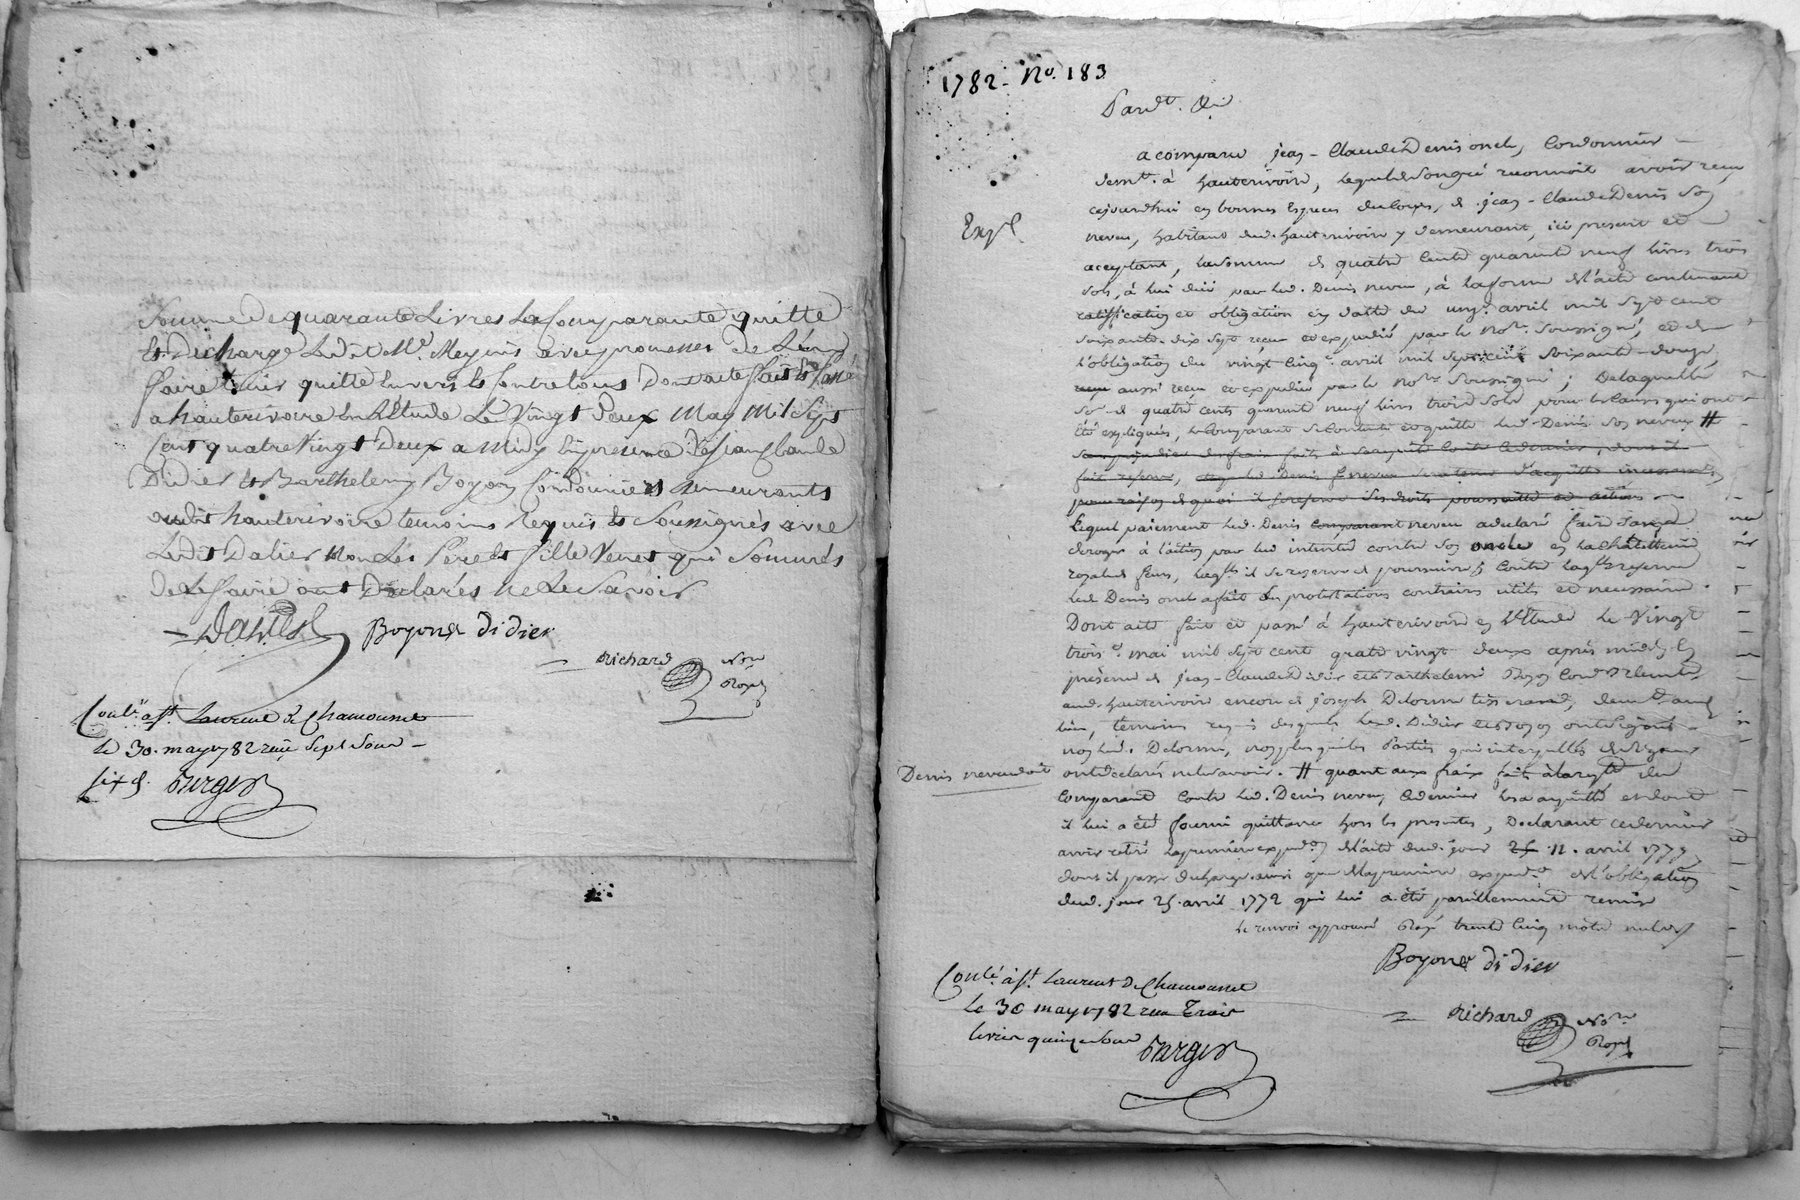 Somme de quarante Livres La Comparante quitte
et decharge Ledit Me. Meynis avec promesse de L'en
faire tenir quitte Envers et Contre tous Dont acte fait et passé
a hauterivoire En L'Etude Le Vingt Deux May Mil Sept
Cent quatre Vingt Deux a Midy En presence de Jean Claude
Didier et Barthelemy Boyon Cordonniers demeurants
audit hauterivoire temoins Requis et Soussignés avec
Ledit Dalier Non Les Pere et fille Venet qui Sommés
de Le faire ont Declarés ne Le Savoir
Boyone didier
Richard Nore
Royal
Conlé. a St. Laurent de Chamousset
le 30. may 1782 reçu Sept Sous
six d. Farges
1782 - No. 183
Pardt. &a
a comparu jean-Claude Denis oncle, Cordonnier
demt. à hauterivoire, lequel de son gré reconnoit avoir reçu
cejourdhui en bonnes Especes du Cours, de jean-Claude Denis son
Exp
neveu, habitant dud. hauterivoire y demeurant, ici present et
acceptant, la somme de quatre Cents quarante neuf livres trois
sols, à lui due par led. Denis neveu, à la forme de l'acte contenant
ratification et obligation en datte du onze avril mil Sept cent
soixante-dix Sept reçu et expedié par le Nore. Soussigné, et de
l'obligation du vingt Cinq avril mil Sept cent Soixante-douze,
reçu aussi reçu et expedié par le Nore Soussigné; De laquelle
Se de quatre cents quarante neuf livres trois Sols pour les Causes qui ont
été expliquées, le Comparant Se Contente et quitte led. Denis Son neveu #
fait reserve,
pour raison de quoi il se reserve Ses droits poursuitte et actions
lequel paiement led. Denis comparant neveu a declaré faire Sans
deroger à l'action par lui intentée contre Son oncle en la Chatellenie
led. Denis oncle a fait des protestations contraires utiles et necessaires.
Dont acte fait et passé à hauterivoire en l'Etude le Vingt
trois e. mai mil Sept cent quatre vingt deux après midy, En
présence de jean-Claude Didier et Barthelemi Boyon
aud. hauterivoire encore de joseph Delorme tisserand, demt. aud.
lieu, temoins requis desquels led. Didier et Boyon ont Signé
non led. Delorme, non plus que les Parties qui interpellés de Signer
Denis neveu doit
ont declarés ne le Savoir. # quant aux fraix faits à la reqte du
Comparant contre led. Denis neveu, ce dernier les a acquitté et dont
il lui a été fourni quittance hors les presentes, Declarant ce dernier
avoir retiré la premiere expedon. de l'acte dud. jour 25 11. avril 1777
dont il passe decharge ainsi que de la premiere expedon. de l'obligation
dud. jour 25. avril 1772 qui lui a été pareillement remise
le renvoi approuvé Rayé trente Cinq mots nuls
Boyone didier
Richard Nore
Royal
Conlé. à St. Laurent de Chamousset
le 30 may 1782 reçu Trois
livres quinze Sous
Farges